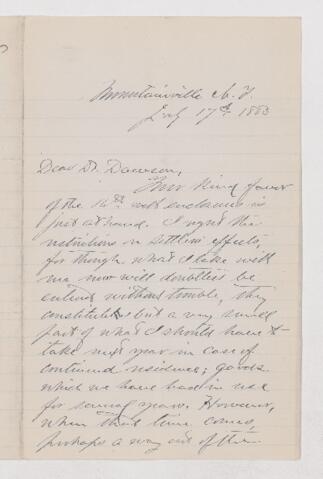 Mountainville N.Y.
July 17th 1883
Dear Dr. Dawson,
Your kind favor
of the 14th with enclosures is
just at hand. I regret the
restrictions on settlers effects,
for though what I take with
me now will doubtless be
entered without trouble, they
constitute but a very small
part of what I should have to
take next year in case of
continued residence; goods
which we have had in use
for several years. However,
when that time comes,
perhaps a way out of the